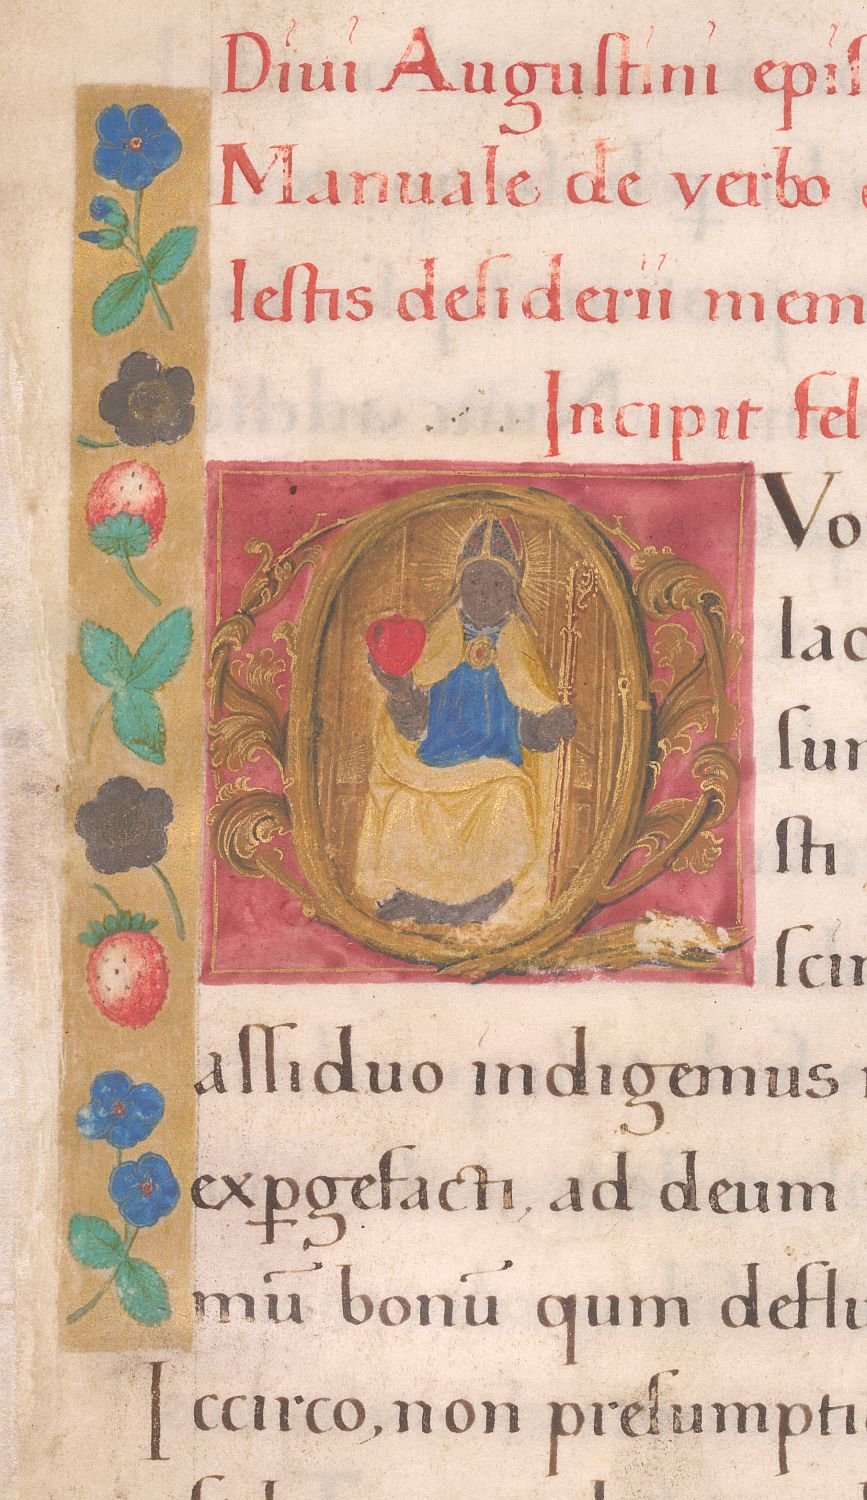 Diui Augustini epis
Manuale de verbo
lestis desiderii mem
Incipit fel
QVo
lac
sun
sti
scin
assiduo indigemus
exꝑgefacti, ad deum
mū bonū qum deflu
Iccirco, non presumpti